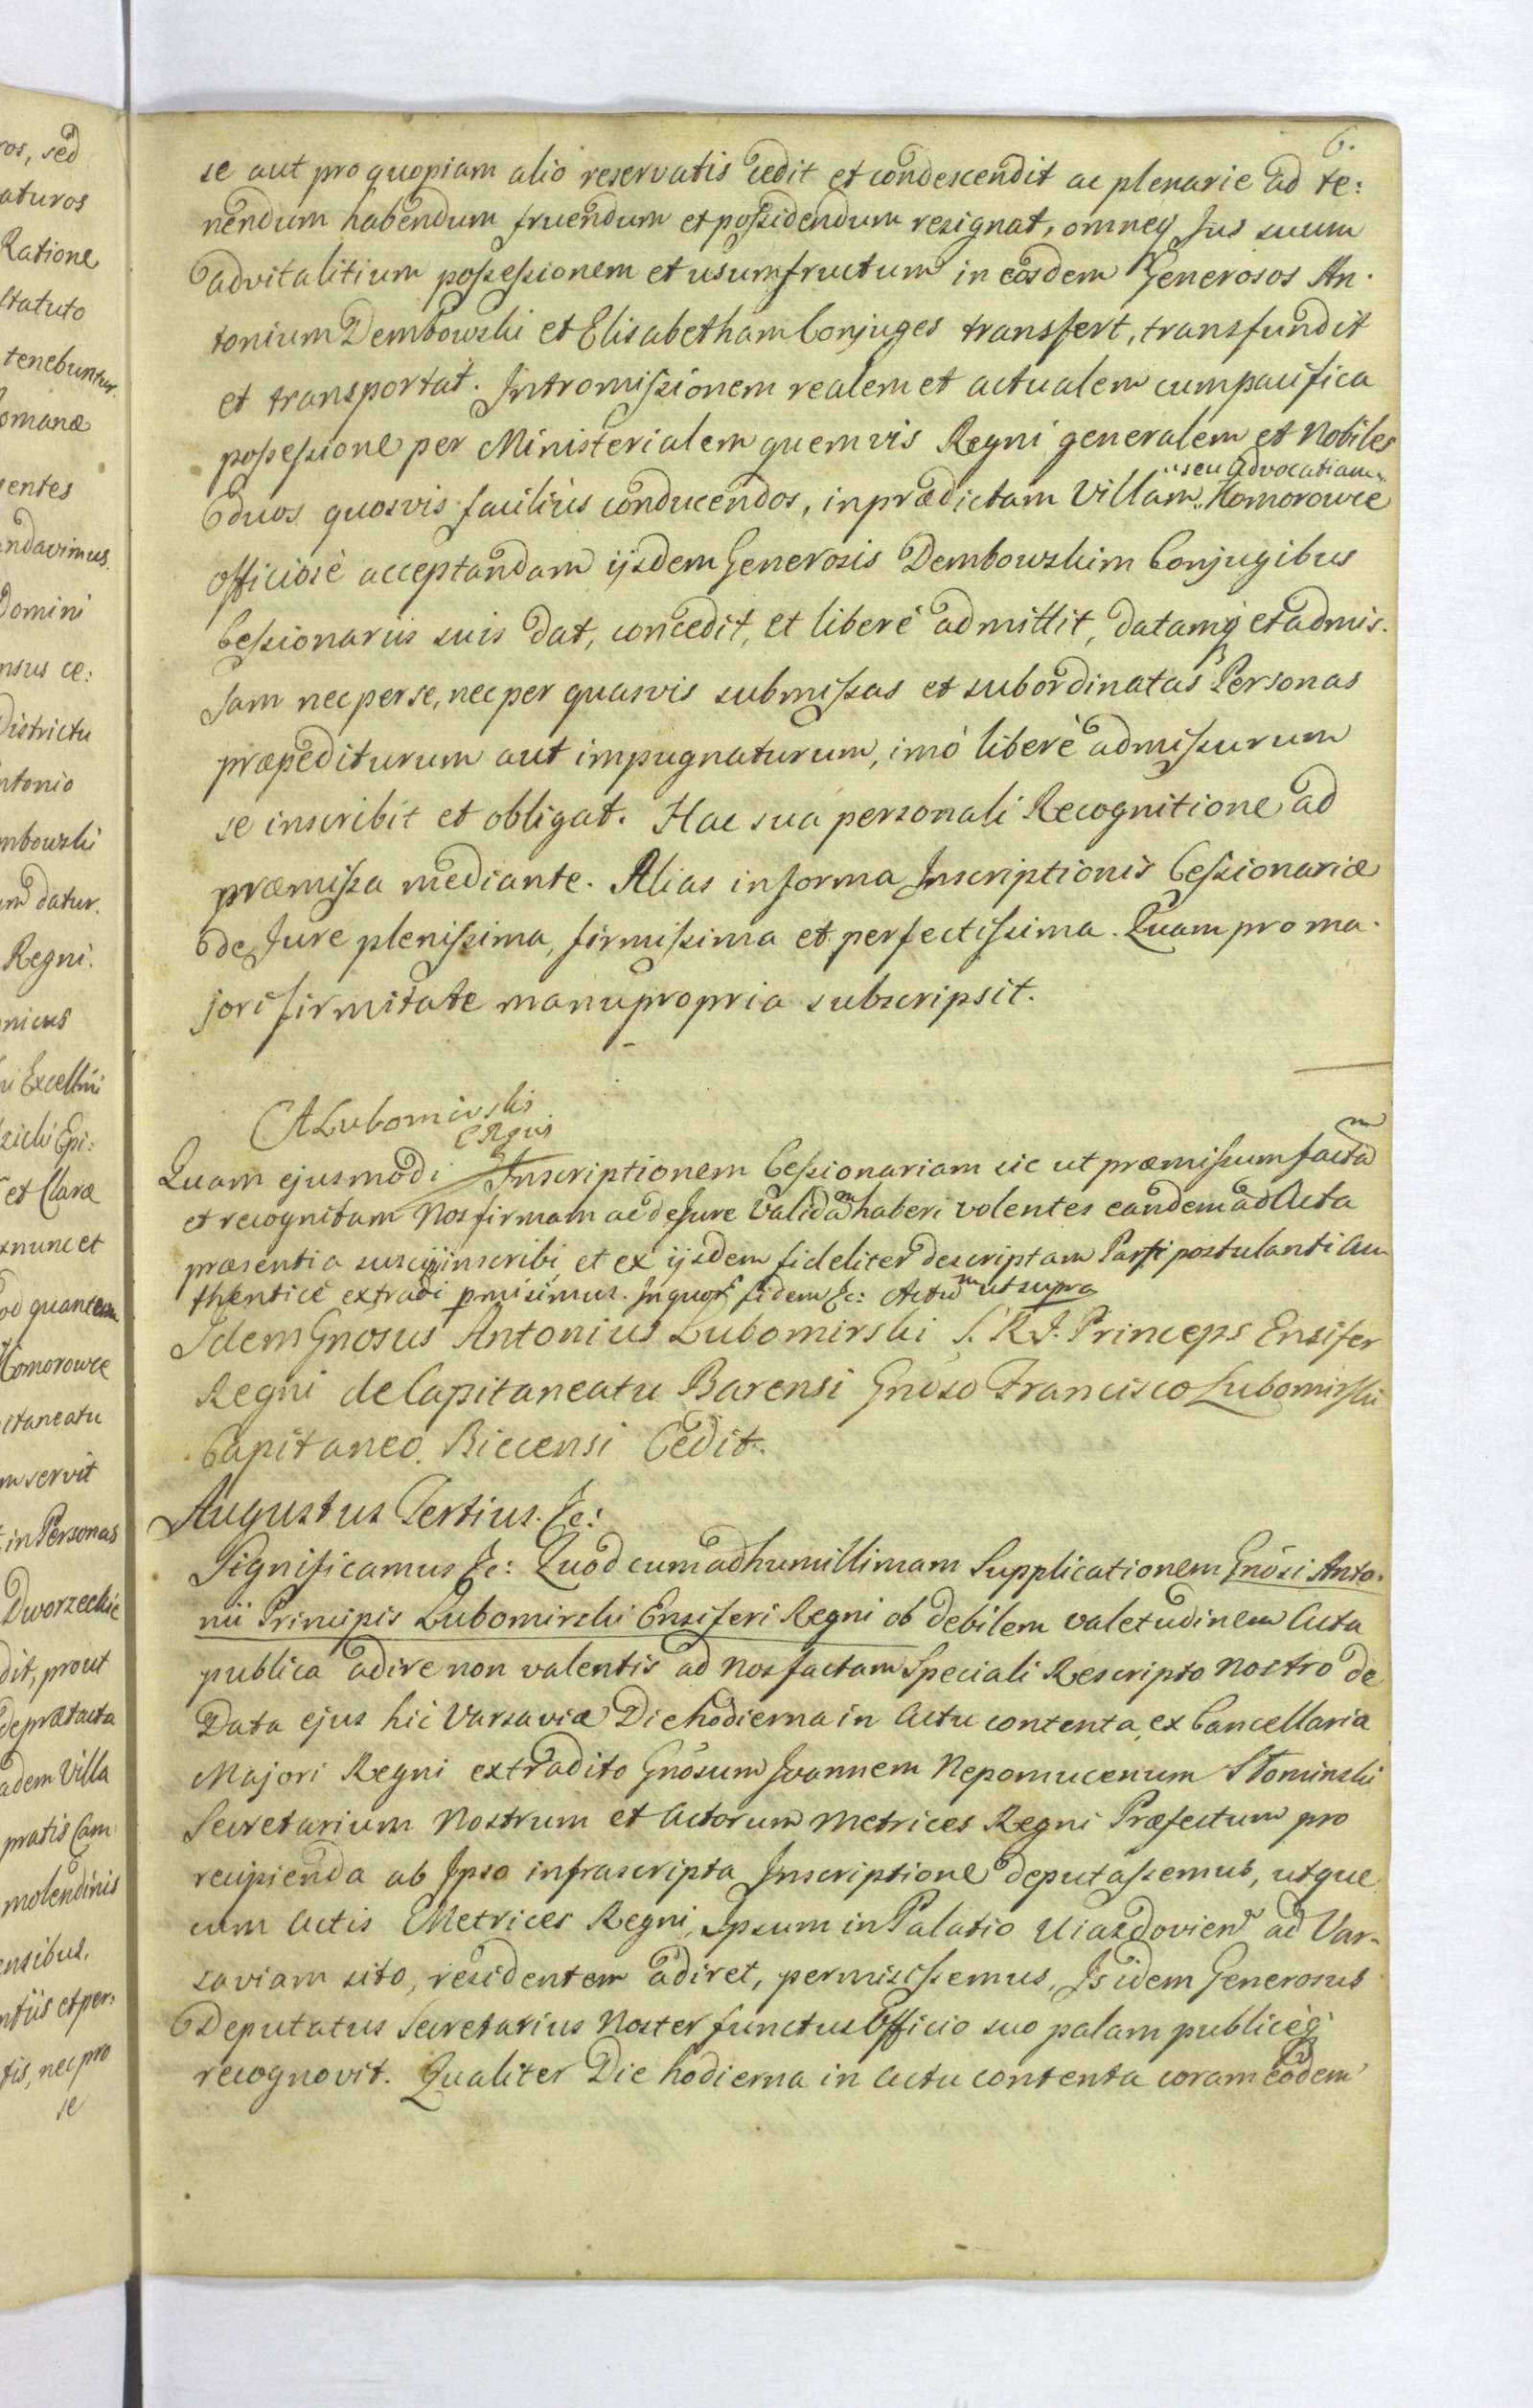 6.
se aut pro quopiam alio reservatis cedit et condescendit ac plenarie ad te:
nendum habendum fruendum et possidendum resignat, omneq Jus suum
advitalitium possessionem et usumfructum in eosdem Generosos An.
tonium Dembowski et Elisabetham Conjuges transfert, transfundit
et transportat. Intromissionem realem et actualem cum pacifica
possessione per Ministerialem quemvis Regni generalem et Nobiles
seu advocatiam
duos quosvis facilius conducendos, in prædictam Villam Komorowce
officiosè acceptandam ijsdem Generosis Dembowskim Conjugibus
Cessionariis suis dat, concedit, et liberè admittit, datamq et admis.
sam nec per se, nec per quasvis submissas et subordinatas Personas
præpediturum aut impugnaturum, imò liberè admissurum
se inscribit et obligat. Hac sua personali Recognitione ad
præmissa mediante. Alias in forma Inscriptionis Cessionariæ
de Jure plenissima, firmissima et perfectissima. Quam pro ma.
jori firmitate manu propria subscripsit.
A Lubomirski
Quam ejusmodi Inscriptionem Cessionariam sic ut præmissum factam
et recognitam Nos firmam ac de Jure validam haberi volentes eandem ad Acta
præsentia suscipi inscribi et ex ijsdem fideliter descriptam Parti postulanti au
thenticè extradi pmisimus. In quor fidem &c: Actum ut supra
Idem Gnosus Antonius Lubomirski S. R. I. Princeps Ensifer
Regni de Capitaneatu Barensi Gnoso Francisco Lubomirski
Capitaneo Biecensi Cedit.
Augustus Tertius. &c:
Significamus &c: Quod cum ad humillimam Supplicationem Gnosi Anto.
nii Principis Lubomirski Ensiferi Regni ob debilem valetudinem Acta
publica adire non valentis ad Nos factam Speciali Rescripto Nostro de
Data ejus hic Varsaviæ Die hodierna in Actu contenta, ex Cancellaria
Majori Regni extradito Gnosum Joannem Nepomucenum Słominski
Secretarium Nostrum et Actorum Metrices Regni Præfectum pro
recipienda ab Ipso infrascripta Inscriptione deputassemus, utque
cum Actis Metrices Regni, Ipsum in Palatio Uiazdovien ad Var-
saviam sito, residentem adiret, permisissemus, Is idem Generosus
Deputatus Secretarius Noster functus Officio suo palam publicèq
recognovit. Qualiter Die hodierna in Actu contenta coram eodem